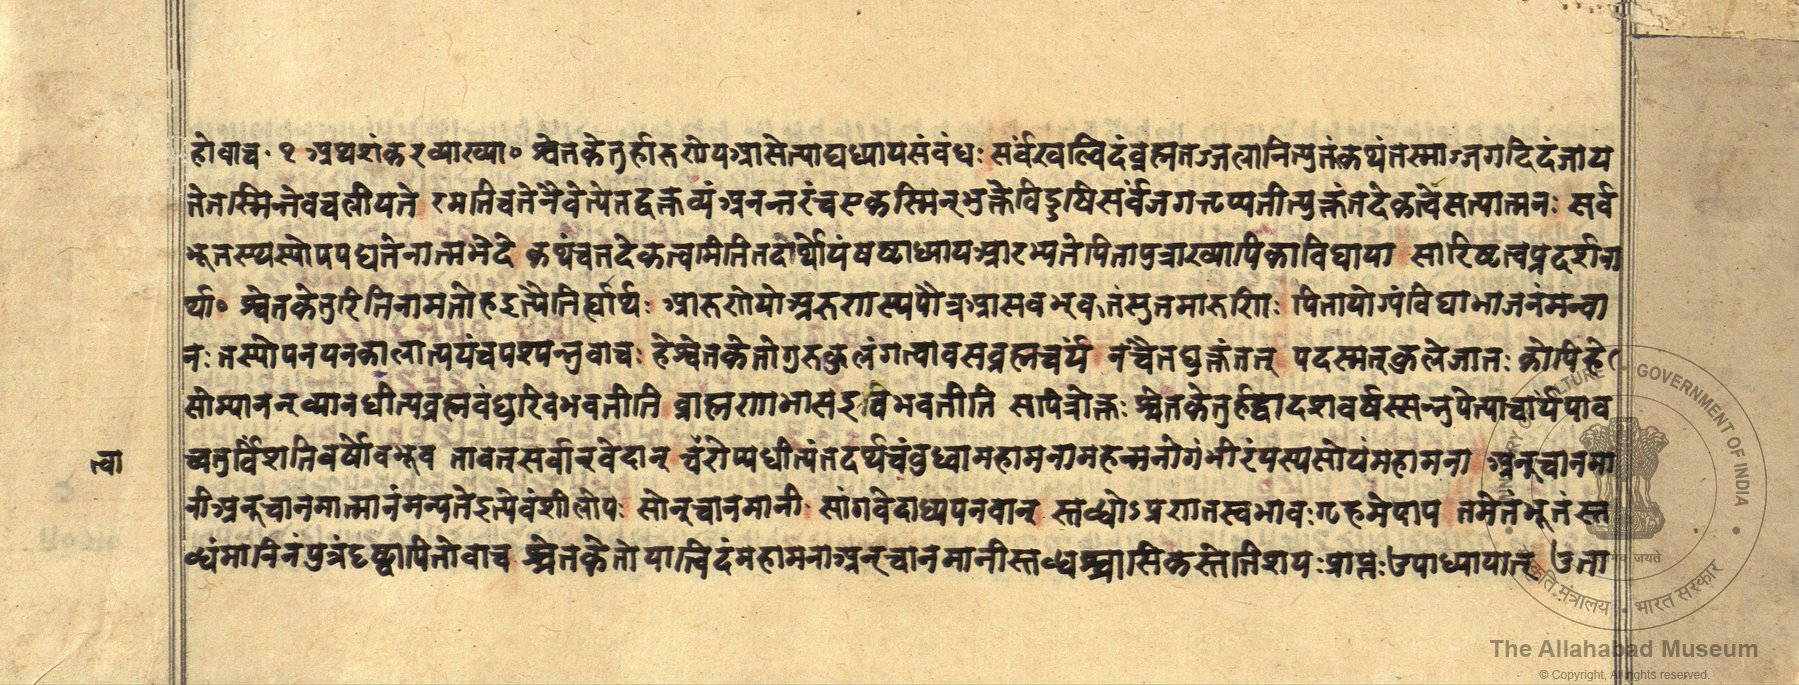 होवाच १ अथ शंकरव्याख्या० श्वेतकेतुर्हारुणेय आसेत्याद्यध्यायसंबंधः सर्वं खल्विदं ब्रह्म तज्जलानित्युक्तं कथं तस्माज्जगदिदं जाय
ते तस्मिन्नेव च लीयते ऽमति च तेनैवेत्येतद्वक्तव्यं अनन्तरं च एकस्मिन् भुक्ते विदुषि सर्वं जगत्तृप्यतीत्युक्तं तदेकत्वे सत्यात्मनः सर्व
भूतस्यस्योपपद्यते नात्मभेदे कथं च तदेकत्वमिति तदर्थोयं षष्ठाध्याय आरभ्यते पितापुत्राख्यायिका विद्याया सारिष्टत्वप्रदर्शना
र्था० श्वेतकेतुरिति नामतो ह इत्यैतिह्यार्थः आरुणेयो अरुणस्य पौत्र आस बभूव तं सुतमारुणिः पिता योग्यं विद्याभाजनं मन्वा
नः तस्योपनयनकालात्ययं च पश्यन्नुवाच हे श्वेतकेतो गुरुकुलं गत्वा वस ब्रह्मचर्यं नचैतद्युक्तं तत् यदस्मत्कुले जातः कोपि हे
सोम्याननूच्यानधीत्य ब्रह्मबंधुरिव भवतीति ब्राह्मणाभास इव भवतीति स पित्रोक्तः श्वेतकेतुर्ह द्वादशवर्षस्सन्नुपेत्याचार्यं याव
च्चतुर्विंशतिवर्षो बभूव तावत् सर्वान् वेदान् चरोप्यधीत्य तदर्थं च बुध्वा महामना महन्मनो गंभीरं यस्य सोयं महामना अनूचानमा
त्वा
नी अनूचानमात्मानं मन्यत इत्येवंशीलो यः सोनूचानमानी सांगवेदाध्ययनवान् स्तब्धो ऽप्रणतस्वभावः गृहमेयाय तमेतं भूतं स्त
ब्धं मानिनं पुत्रं दृष्ट्वा पितोवाच श्वेतकेतो यन्विदं महामना अनूचानमानी स्तब्धश्चासि कस्तेतिशयः प्राप्तः उपाध्यायात् उता
The Allahabad Museum
© Copyright, All rights reserved.
MINISTRY OF CULTURE • GOVERNMENT OF INDIA
संस्कृति मंत्रालय • भारत सरकार